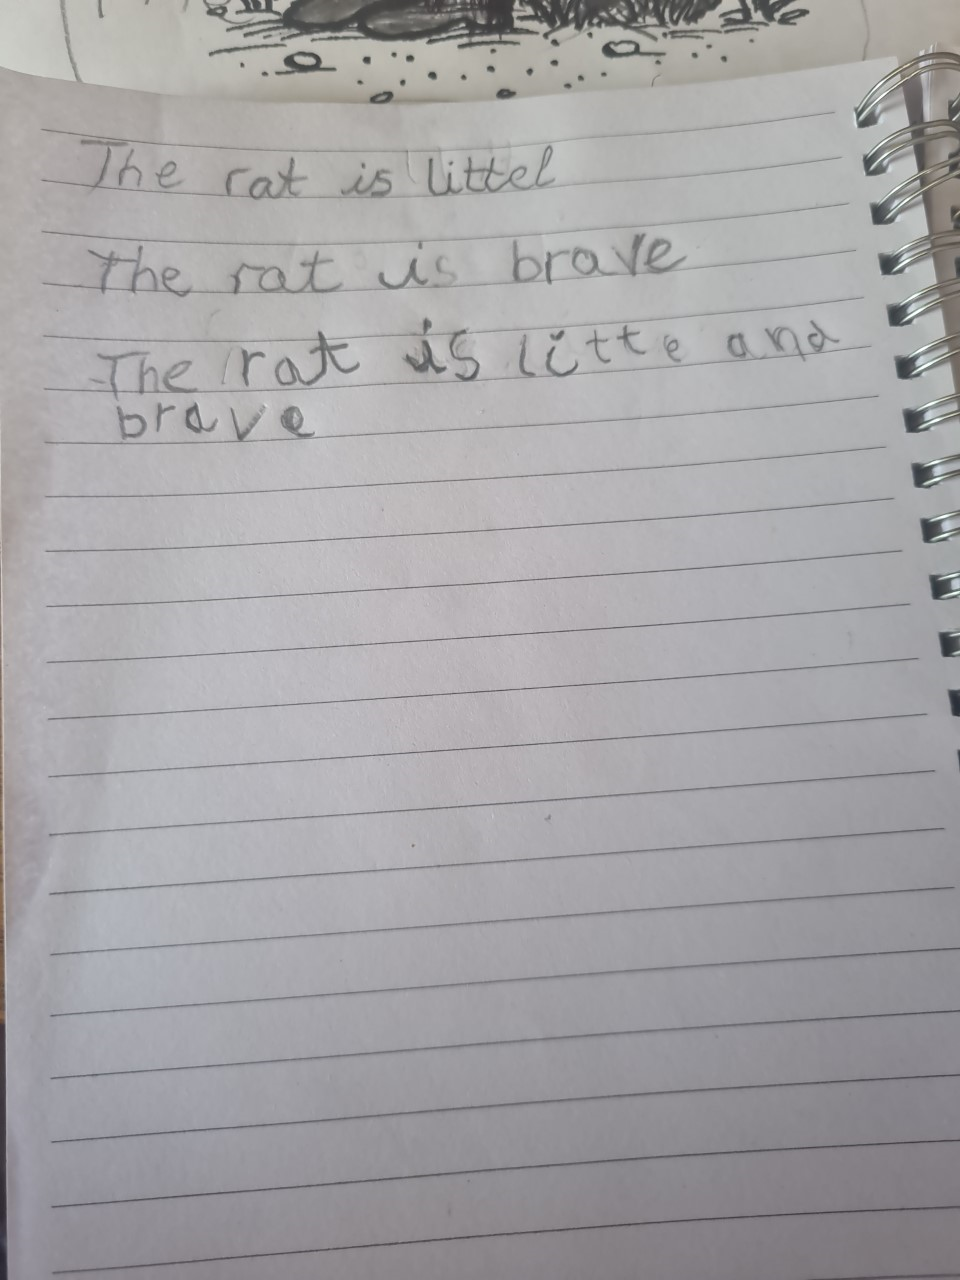 The rat is littel
the rat is brave
The rat is litte and
brave